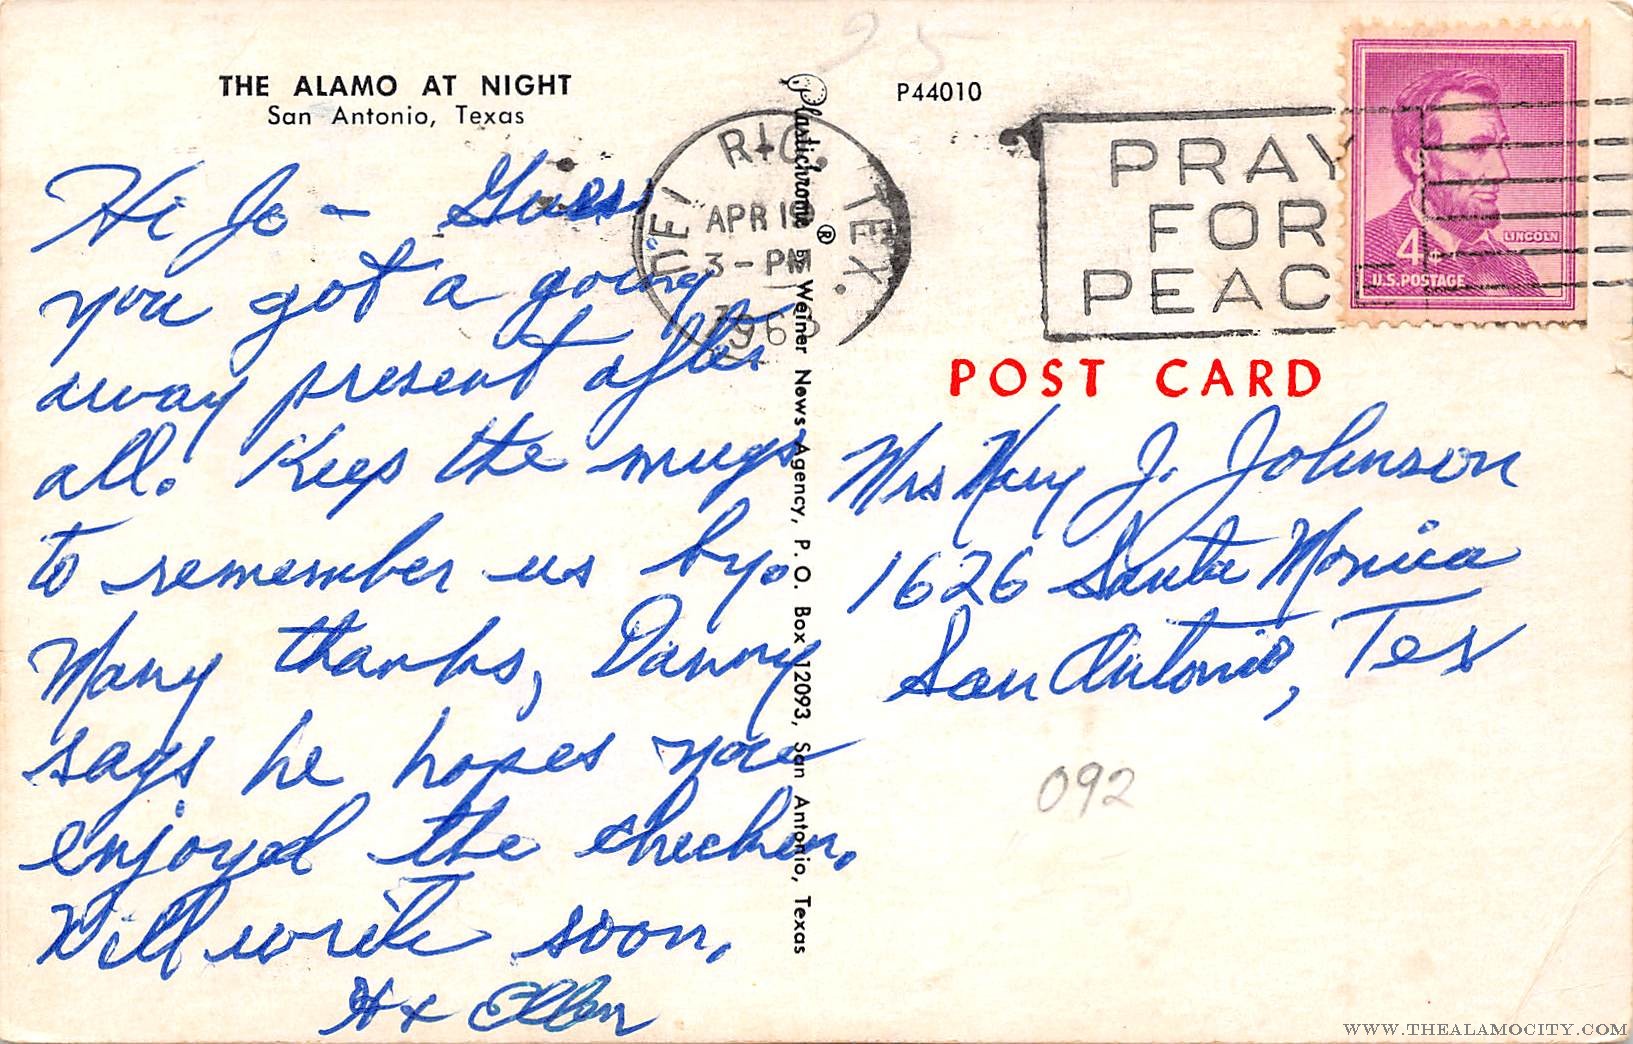 THE ALAMO AT NIGHT
San Antonio, Texas
Hi Jo - Guess
you got a going
away present after
all. Keep the mugs
to remember us by.
Many thanks, Danny
says he hopes you
enjoyed the chicken.
Will write soon,
Ellen
Plastichrome ® by Weiner News Agency, P. O. Box 12093, San Antonio, Texas
P44010
25
TEX.
APR
3-PM
PRAY
FOR
PEACE
4¢
LINCOLN
U.S. POSTAGE
POST CARD
Mrs Mary J. Johnson
1626 Santa Monica
San Antonio, Tex
092
WWW.THEALAMOCITY.COM